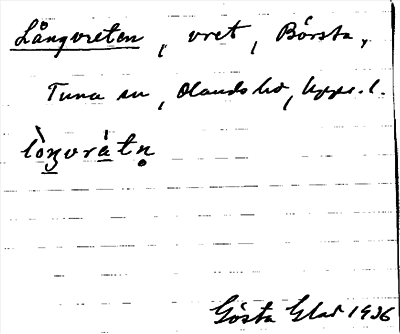 Långvreten, vret, Börsta,
Tuna sn, Olands hd, Upps. l.
lòŋvràtn̥
Gösta Glad 1936